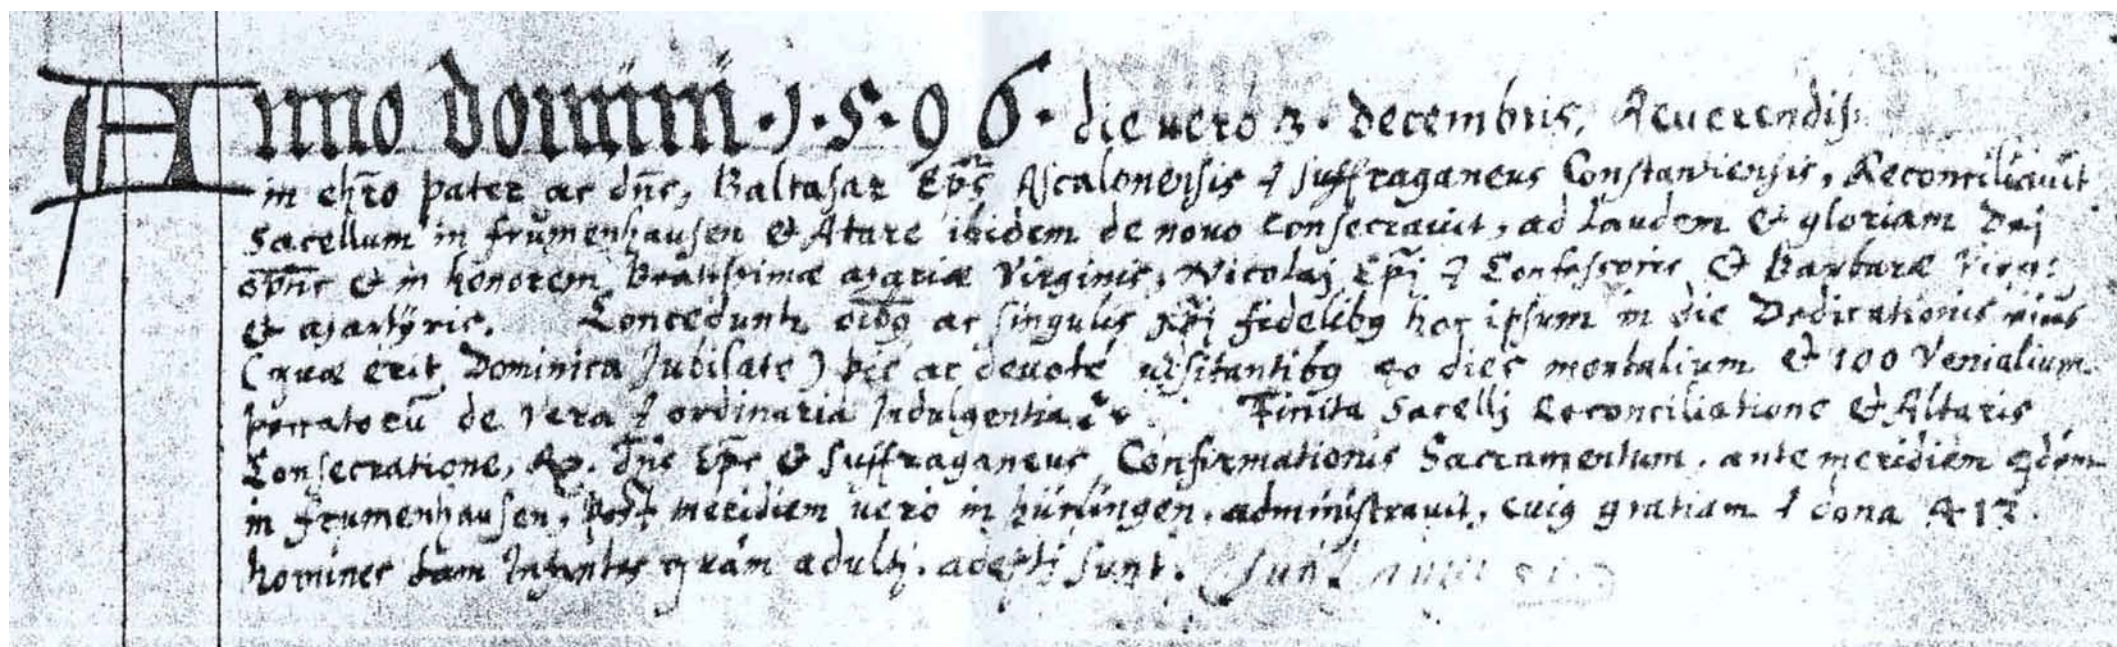 Anno domini · 1 · 5 · 9 6 · die vero 3 · Decembris, Reverendiss:
in chr̄o pater ac dn̄s, Baltasar Ep̄s Ascalonensis & suffraganeus Constantiensis, Reconciliavit
Sacellum in frumenhausen & Atare ibidem de novo Consecravit, ad Laudem & gloriam Dei
& in honorem Beatissimæ Mariæ Virginis, Nicolaj Ep̄j & Confessoris & Barbaræ Virg:
& Martyris. Concedunt ac singulis xp̄j fidelibꝫ hoc ipsum in die Dedicationis eius
(quæ erit Dominica Jubilate) pie ac devote visitantibꝫ 40 dies mortalium & 100 Venialium
peccatorū de vera & ordinaria Indulgentia. Finita Sacellj Reconciliatione & Altaris
Consecratione, dn̄s Ep̄s & Suffraganeus Confirmationis Sacramentum, ante meridiem
in frumenhausen, post meridiem vero in hürlingen, administravit, cuiꝫ gratiam & dona 413
homines tam Infantes quàm adultj, adeptj sunt.